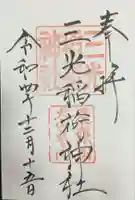 奉拝
三光稲荷神社
令和四年十二月十五日